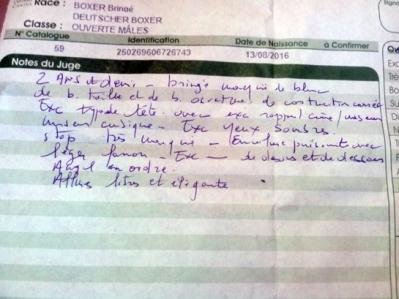 Race : BOXER Bringé
DEUTSCHER BOXER
Classe : OUVERTE MÂLES
N° Catalogue Identification Date de Naissance à Confirmer
59 250269606726743 13/08/2016
Notes du Juge
2 Ans et demi - bringé marqué de blanc
de b. taille et de b. ossature de construction carrée
Exc type de tête avec exc rapport crâne/museau
museau cubique - Exc yeux sombres
stop très marqué - Encolure puissante avec
léger fanon - Exc — de dessus et de dessous
Angul en ordre.
Allures libres et élégante